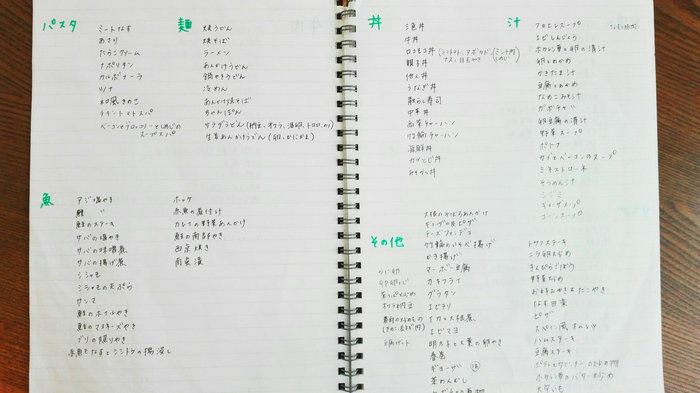 パスタ
ミートなす
あさり
たらこクリーム
ナポリタン
カルボナーラ
ツナ
和風きのこ
チキントマトスパ
ベーコンとブロッコリーとしめじの
スープスパ
麺
焼うどん
焼そば
ラーメン
あんかけうどん
鍋やきうどん
冷めん
あんかけ焼そば
ちゃんぽん
サラダうどん(納豆、オクラ、温卵、トロロ、のり)
生姜あんかけうどん(卵、かにかま)
魚
アジ塩やき
鮭 〃
鮭のステーキ
サバの塩やき
サバの味噌煮
サバの揚げ煮
シシャモ
シシャモの天ぷら
サンマ
鮭のホイルやき
鮭のマヨネーズやき
ブリの照りやき
赤魚となすとシシトウの揚浸し
ホッケ
赤魚の煮付け
カレイの野菜あんかけ
鮭の南部やき
西京焼き
南蛮漬
丼
牛丼
ロコモコ丼
親子丼
他人丼
うなぎ丼
散らし寿司
中華丼
高菜チャーハン
竹輪チャーハン
海鮮丼
カツとじ丼
汁
エビしんじょう
ホウレン草と卵の清汁
卵とわかめ
かきたま汁
豆腐とわかめ
なめこみそ汁
卵豆腐の清汁
野菜スープ
ポトフ
カブとベーコンのスープ
ミネストローネ
そうめん汁
シジミ
ギョーザスープ
コーンスープ
その他
大根のそぼろあんかけ
チーズフォンデュ
竹輪のいそべ揚げ
かき揚げ
マーボー豆腐
カキフライ
グラタン
エビチリ
イカと大根煮
エビマヨ
明太子と大葉の卵やき
春巻
ギョーザ
茶わんむし
オクラ納豆
トウフステーキ
ニラ卵炒め
きんぴらごぼう
野菜炒め
お好みやき&たこやき
なす田楽
ピザ
スペイン風オムレツ
ハムステーキ
豆腐ステーキ
ホウレン草のバター炒め
大学いも